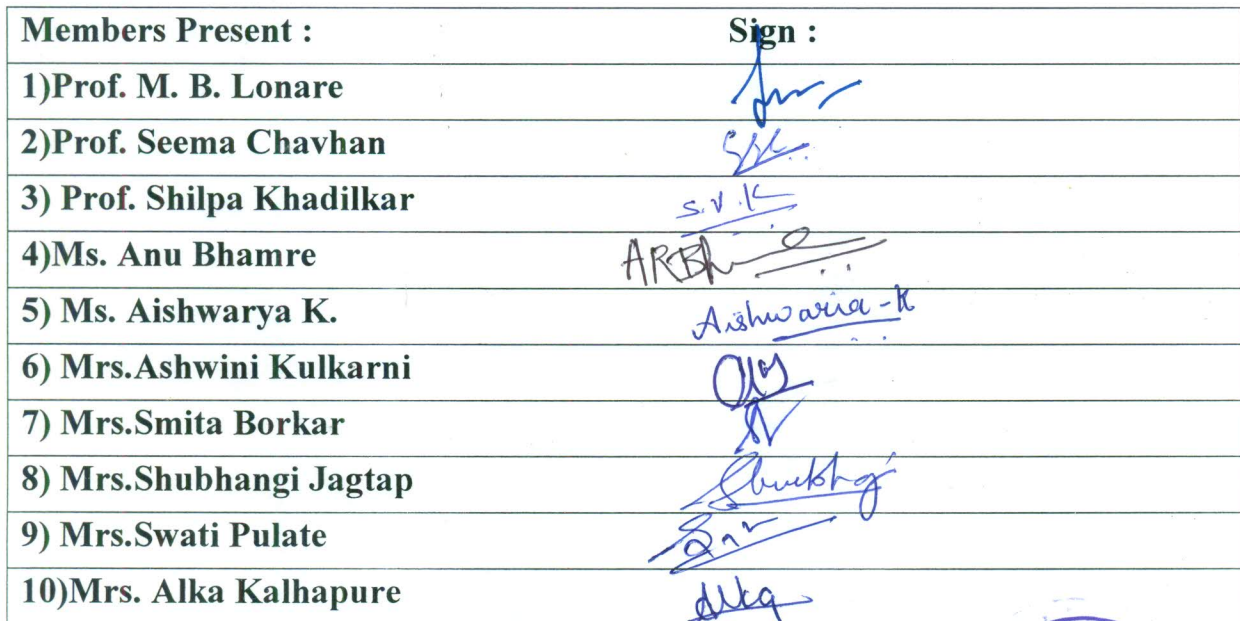 Members Present : Sign :
1)Prof. M. B. Lonare
2)Prof. Seema Chavhan
3) Prof. Shilpa Khadilkar S.V.K
4)Ms. Anu Bhamre ARBh
5) Ms. Aishwarya K. Aishwaria-K
6) Mrs.Ashwini Kulkarni
7) Mrs.Smita Borkar
8) Mrs.Shubhangi Jagtap
9) Mrs.Swati Pulate
10)Mrs. Alka Kalhapure Alka